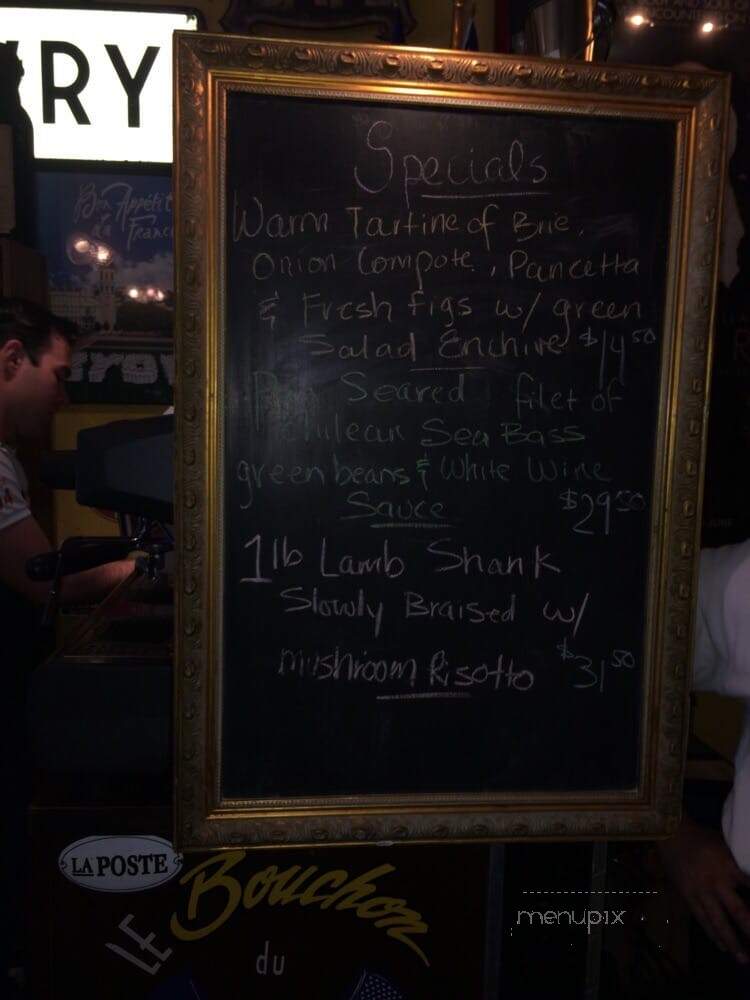 RY
Bon Appétit
Specials
Warm Tartine of Brie,
Onion Compote, Pancetta
& Fresh figs w/ green
Salad Enchive $14.50
Pan Seared filet of
Chilean Sea Bass
green beans & White Wine
Sauce $29.50
1lb Lamb Shank
Slowly Braised w/
mushroom Risotto $31.50
LA POSTE
LE Bouchon
du
menupix